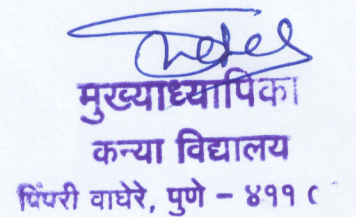 मुख्याध्यापिका
कन्या विद्यालय
पिंपरी वाघेरे, पुणे - ४११